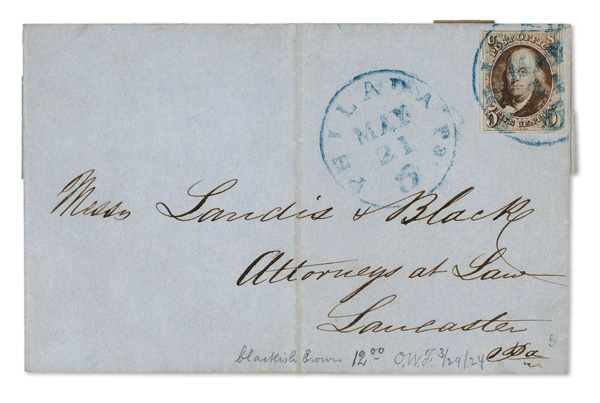 U S
POST OFFICE
FIVE CENTS
5 5
PHILADA Pa.
MAY
21
5
Messrs Landis & Black
Attorneys at Law
Lancaster
Pa
blackish brown 12 00 O.W.F. 3/29/24